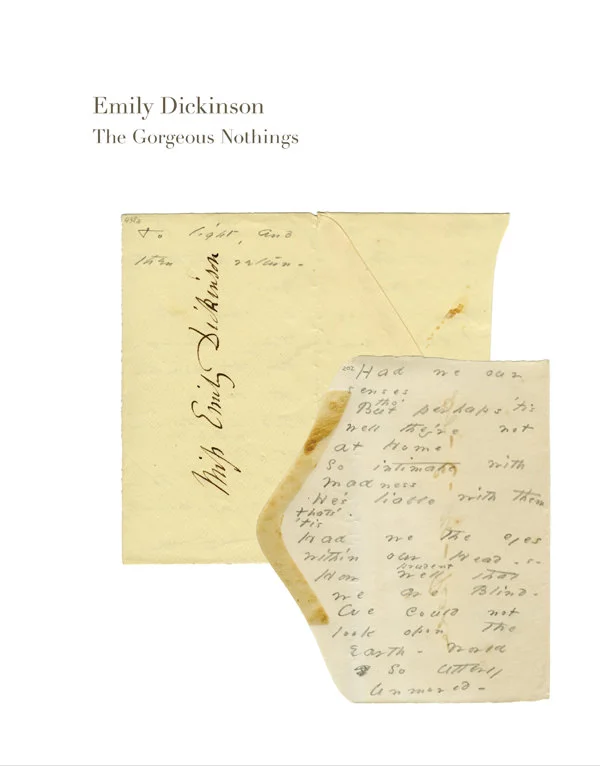 Emily Dickinson
The Gorgeous Nothings
To light, and
then return -
Miss Emily Dickinson
202
Had we our
senses
tho'
But perhaps 'tis
well they're not
at Home
So intimate with
Madness
He's liable with them
that's
'tis
Had we the eyes
within our Head - s -
prudent
How well that
we are Blind -
We could not
look opon the
Earth - World
So utterly
unmoved -